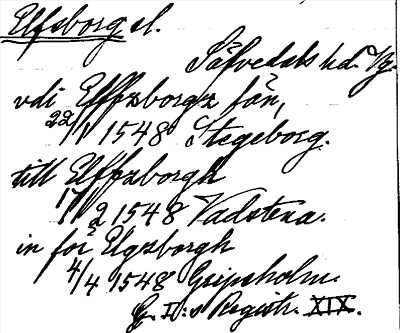 Elfsborg sl.
Säfvedals hd. Vg.
vdi Elffzborgz län,
22/1 1548 Stegeborg.
till Elffzborgh
17/2 1548 Vadstena.
in för Elgzborgh
4/4 1548 Gripsholm.
G. I:s Registr. XIX.